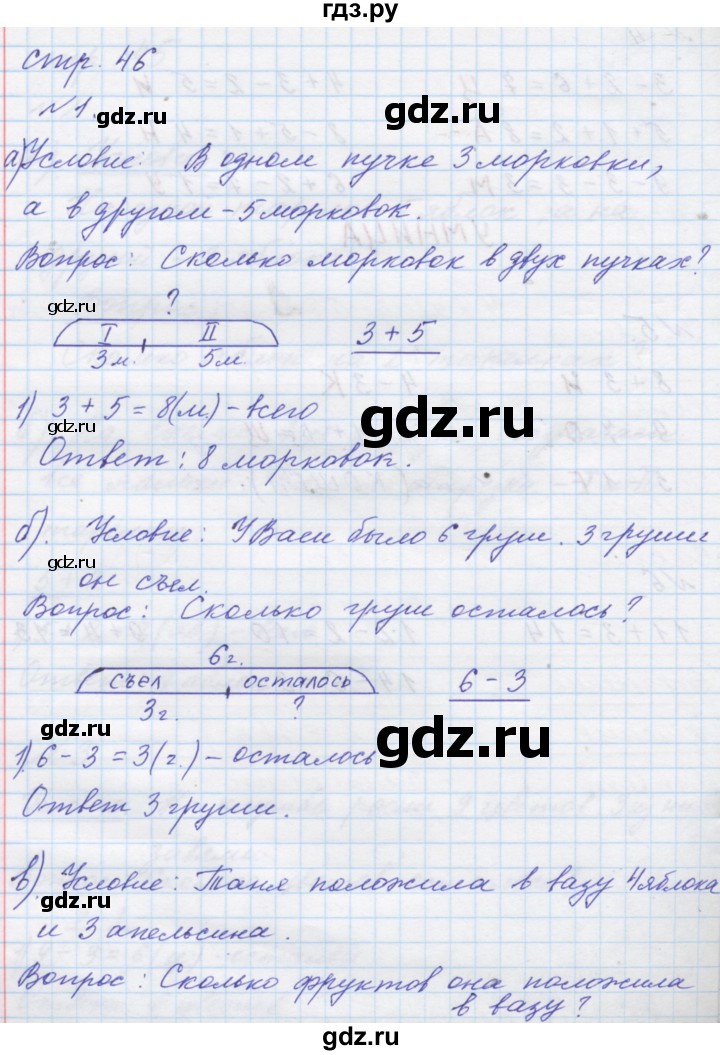 гдз.ру
стр. 46
№1.
а) Условие: В одном пучке 3 морковки,
а в другом – 5 морковок.
Вопрос: Сколько морковок в двух пучках?
?
I II
3м. 5м.
3 + 5
1) 3 + 5 = 8(м.) – всего
Ответ: 8 морковок.
б). Условие: У Васи было 6 груш. 3 груши
он съел.
Вопрос: Сколько груш осталось?
6г.
съел осталось
3г. ?
6 – 3
1) 6 – 3 = 3(г.) – осталось
Ответ 3 груши.
в) Условие: Таня положила в вазу 4 яблока
и 3 апельсина.
Вопрос: Сколько фруктов она положила
в вазу?
gdz.ru
gdz.ru
gdz.ru
gdz.ru
gdz.ru
gdz.ru
gdz.ru
gdz.ru
gdz.ru
gdz.ru
gdz.ru
gdz.ru